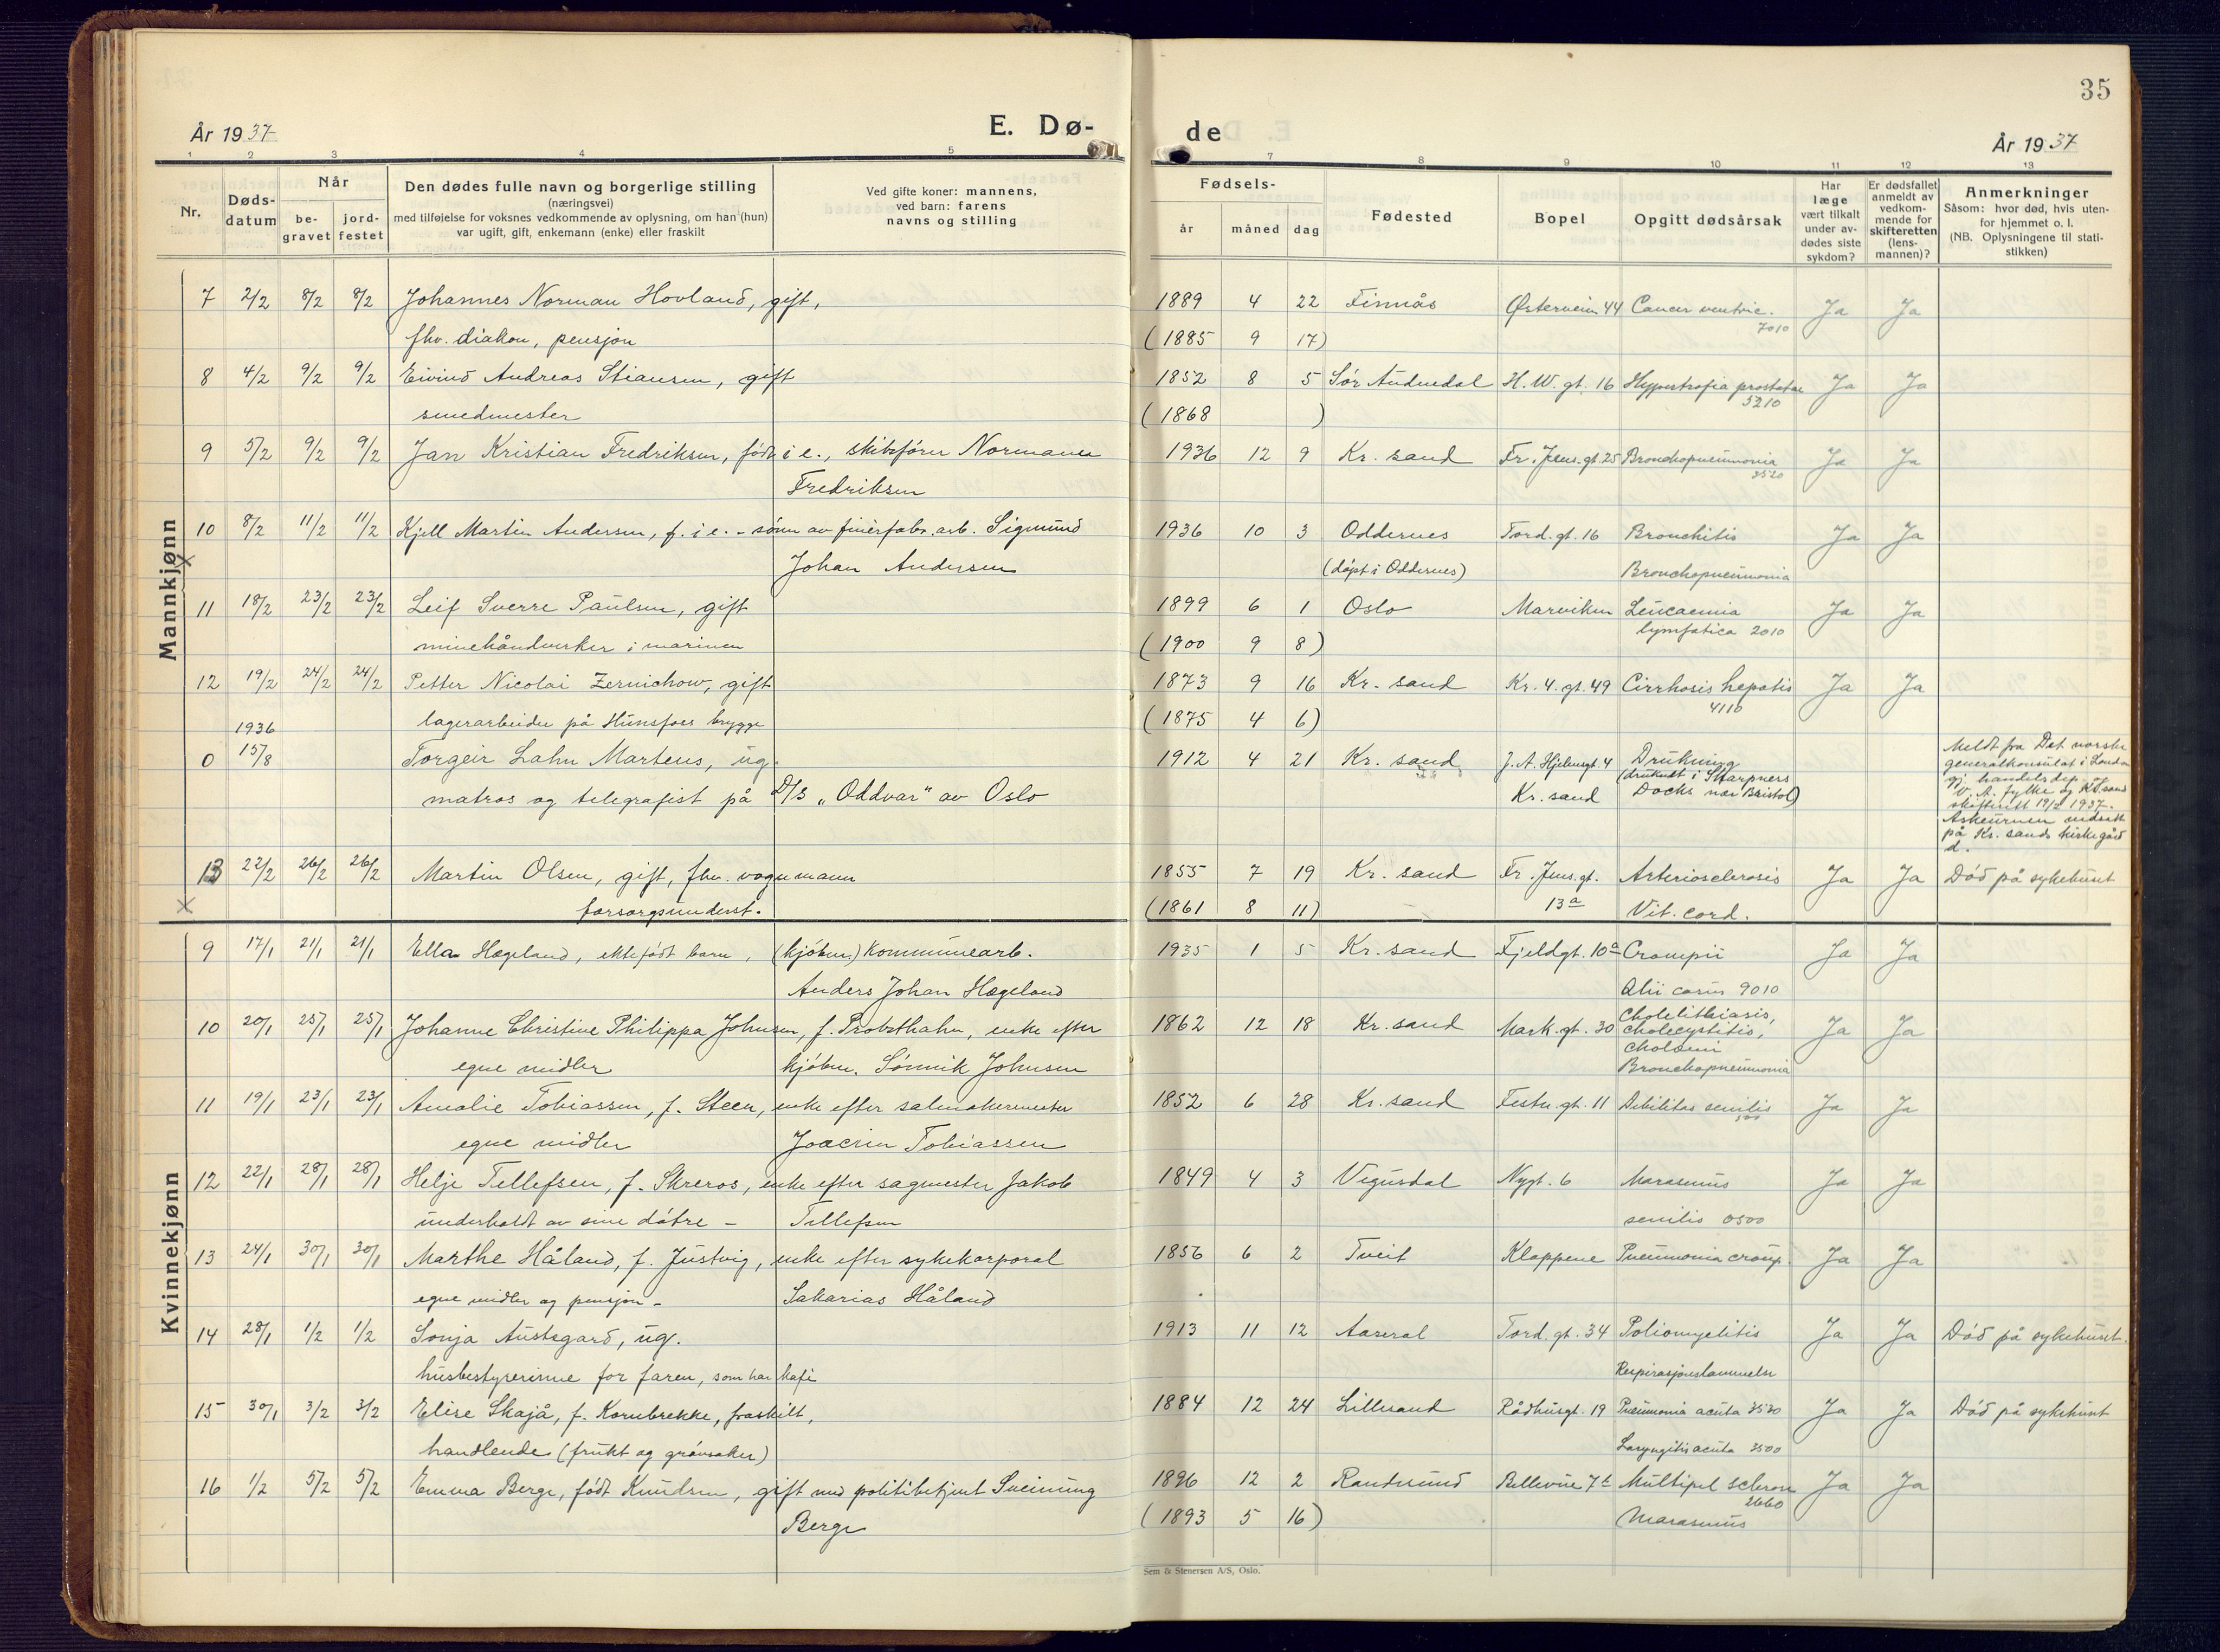 35
År 1937
E. Dø-
de
År 1937
1 2 3 4 5 7 8 9 10 11 12 13
Nr.
Døds-
datum
Når
be-
gravet
jord-
festet
Den dødes fulle navn og borgerlige stilling
(næringsvei)
med tilføielse for voksnes vedkommende av oplysning, om han (hun)
var ugift, gift, enkemann (enke) eller fraskilt
Ved gifte koner: mannens,
ved barn: farens
navns og stilling
Fødsels-
år måned dag
Fødested
Bopel
Opgitt dødsårsak
Har
læge
vært tilkalt
under av-
dødes siste
sykdom?
Er dødsfallet
anmeldt av
vedkom-
mende for
skifteretten
(lens-
mannen)?
Anmerkninger
Såsom: hvor død, hvis uten-
for hjemmet o. l.
(NB. Oplysningene til stati-
stikken)
Mannkjønn
7 2/2 8/2 8/2 Johannes Norman Hovland, gift, 1889 4 22 Finnås Østerveien 44 Cancer ventric. Ja Ja
7010
fhv. diakon, pensjon (1885 9 17)
8 4/2 9/2 9/2 Eivind Andreas Stiansen, gift 1852 8 5 Sør Audnedal H. W. gt. 16 Hypertrofia prostatae Ja Ja
5210
smedmester (1868 )
9 5/2 9/2 9/2 Jan Kristian Fredriksen, født i e., skibsfører Normann 1936 12 9 Kr. sand Fr. Jens. gt. 25 Bronchopneumonia Ja Ja
3520
Fredriksen
10 8/2 11/2 11/2 Kjell Martin Andersen, f. i e. - sønn av finérfabr. arb. Sigmund 1936 10 3 Oddernes Tord. gt. 16 Bronchitis Ja Ja
X Johan Andersen (døpt i Oddernes) Bronchopneumonia
11 18/2 23/2 23/2 Leif Sverre Paulsen, gift 1899 6 1 Oslo Marviken Leucaemia Ja Ja
minehåndverker i marinen (1900 9 8) lymfatica 2010
12 19/2 24/2 24/2 Petter Nicolai Zernichow, gift 1873 9 16 Kr. sand Kr. 4. gt. 49 Cirrhosis hepatis Ja Ja
4110
lagerarbeider på Hunsfoss brygge (1875 4 6)
1936
0 15/8 Torgeir Lahn Martens, ug. 1912 4 21 Kr. sand J. A. Hjelmsgt. 4 Drukning
(druknet i Sharpners
matros og telegrafist på D/S „Oddvar" av Oslo Kr. sand Docks nær Bristol)
Meldt fra Det norske
generalkonsulat i London
gj. handelsdep. og
V. A. fylke og Kr.sand
skifterett 19/2 1937.
Askeurnen nedsatt
på Kr. sands kirkegård
d.
13 22/2 26/2 26/2 Martin Olsen, gift, fhv. vognmann 1855 7 19 Kr. sand Fr. Jens. gt. Arteriosclerosis Ja Ja Død på sykehuset
X forsorgsunderst. (1861 8 11) 13a Vit. cord.
Kvinnekjønn
9 17/1 21/1 21/1 Ella Hægeland, ektefødt barn, (kjøbm.) kommunearb. 1935 1 5 Kr. sand Fjeldgt. 10a Ja Ja
Anders Johan Hægeland 9010
10 20/1 25/1 25/1 Johanne Christine Philippa Johnsen, f. Probsthahn, enke efter 1862 12 18 Kr. sand Mark. gt. 30 Cholelithiasis, Ja Ja
cholecystitis,
cholæmi
egne midler kjøbm. Sønnik Johnsen Bronchopneumonia
11 19/1 23/1 23/1 Amalie Tobiassen, f. Steen, enke efter salmakermester 1852 6 28 Kr. sand Festn. gt. 11 Debilitas senilis Ja Ja
500
egne midler Joacim Tobiassen
12 22/1 28/1 28/1 Helje Tellefsen, f. Skreros, enke efter sagmester Jakob 1849 4 3 Vegusdal Nygt. 6 Marasmus Ja Ja
underholdt av sine døtre - Tellefsen senilis 0500
13 24/1 30/1 30/1 Marthe Håland, f. Justvig, enke efter sykekorporal 1856 6 2 Tveit Kloppene Pneumonia croup. Ja Ja
egne midler og pensjon - Sakarias Håland
14 28/1 1/2 1/2 Sonja Austegard, ug. 1913 11 12 Aaseral Tord. gt. 34 Poliomyelitis Ja Ja Død på sykehuset.
husbestyrerinne for faren, som har kafé Respirasjonslammelse
15 30/1 3/2 3/2 Elise Skajå, f. Kornbrekke, fraskilt, 1884 12 24 Lillesand Rådhusgt. 19 Pneumonia acuta 3530 Ja Ja Død på sykehuset
handlende (frukt og grønsaker) Laryngitis acuta 3500
16 1/2 5/2 5/2 Emma Berge, født Knudsen, gift med politibetjent Sveinung 1896 12 2 Randesund Bellevue 7b Multipel sclerose Ja Ja
2660
Berge (1893 5 16) Marasmus
Sem & Stenersen A/S, Oslo.